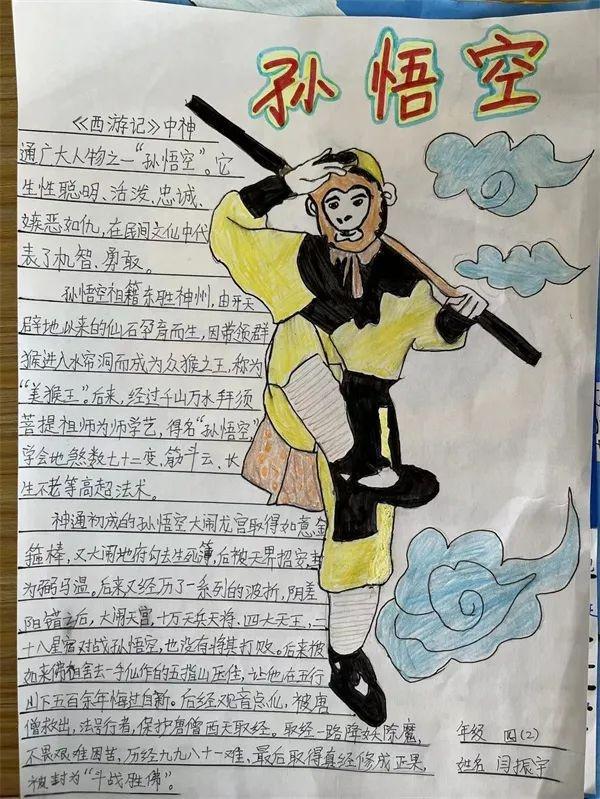 孙悟空
《西游记》中神
通广大人物之一“孙悟空”。它
生性聪明、活泼、忠诚、
嫉恶如仇,在民间文化中代
表了机智、勇敢。
孙悟空祖籍东胜神州,由开天
辟地以来的仙石孕育而生,因带领群
猴进入水帘洞而成为众猴之王,称为
“美猴王”。后来,经过千山万水拜须
菩提祖师为师学艺,得名“孙悟空”,
学会地煞数七十二变、筋斗云、长
生不老等高超法术。
神通初成的孙悟空大闹龙宫取得如意金
箍棒,又大闹地府勾去生死簿,后被天界招安,封
为弼马温。后来又经历了一系列的波折,阴差
阳错之后,大闹天宫,十万天兵天将、四大天王、二
十八星宿对战孙悟空,也没有将其打败。后来被
如来佛祖舍去一手仙作的五指山压住,让他在五行
山下五百余年悔过自新。后经观音点化,被唐
僧救出,法号行者,保护唐僧西天取经。取经一路降妖除魔,
不畏艰难困苦,历经九九八十一难,最后取得真经修成正果,
被封为“斗战胜佛”。
年级 四(2)
姓名 闫振宇